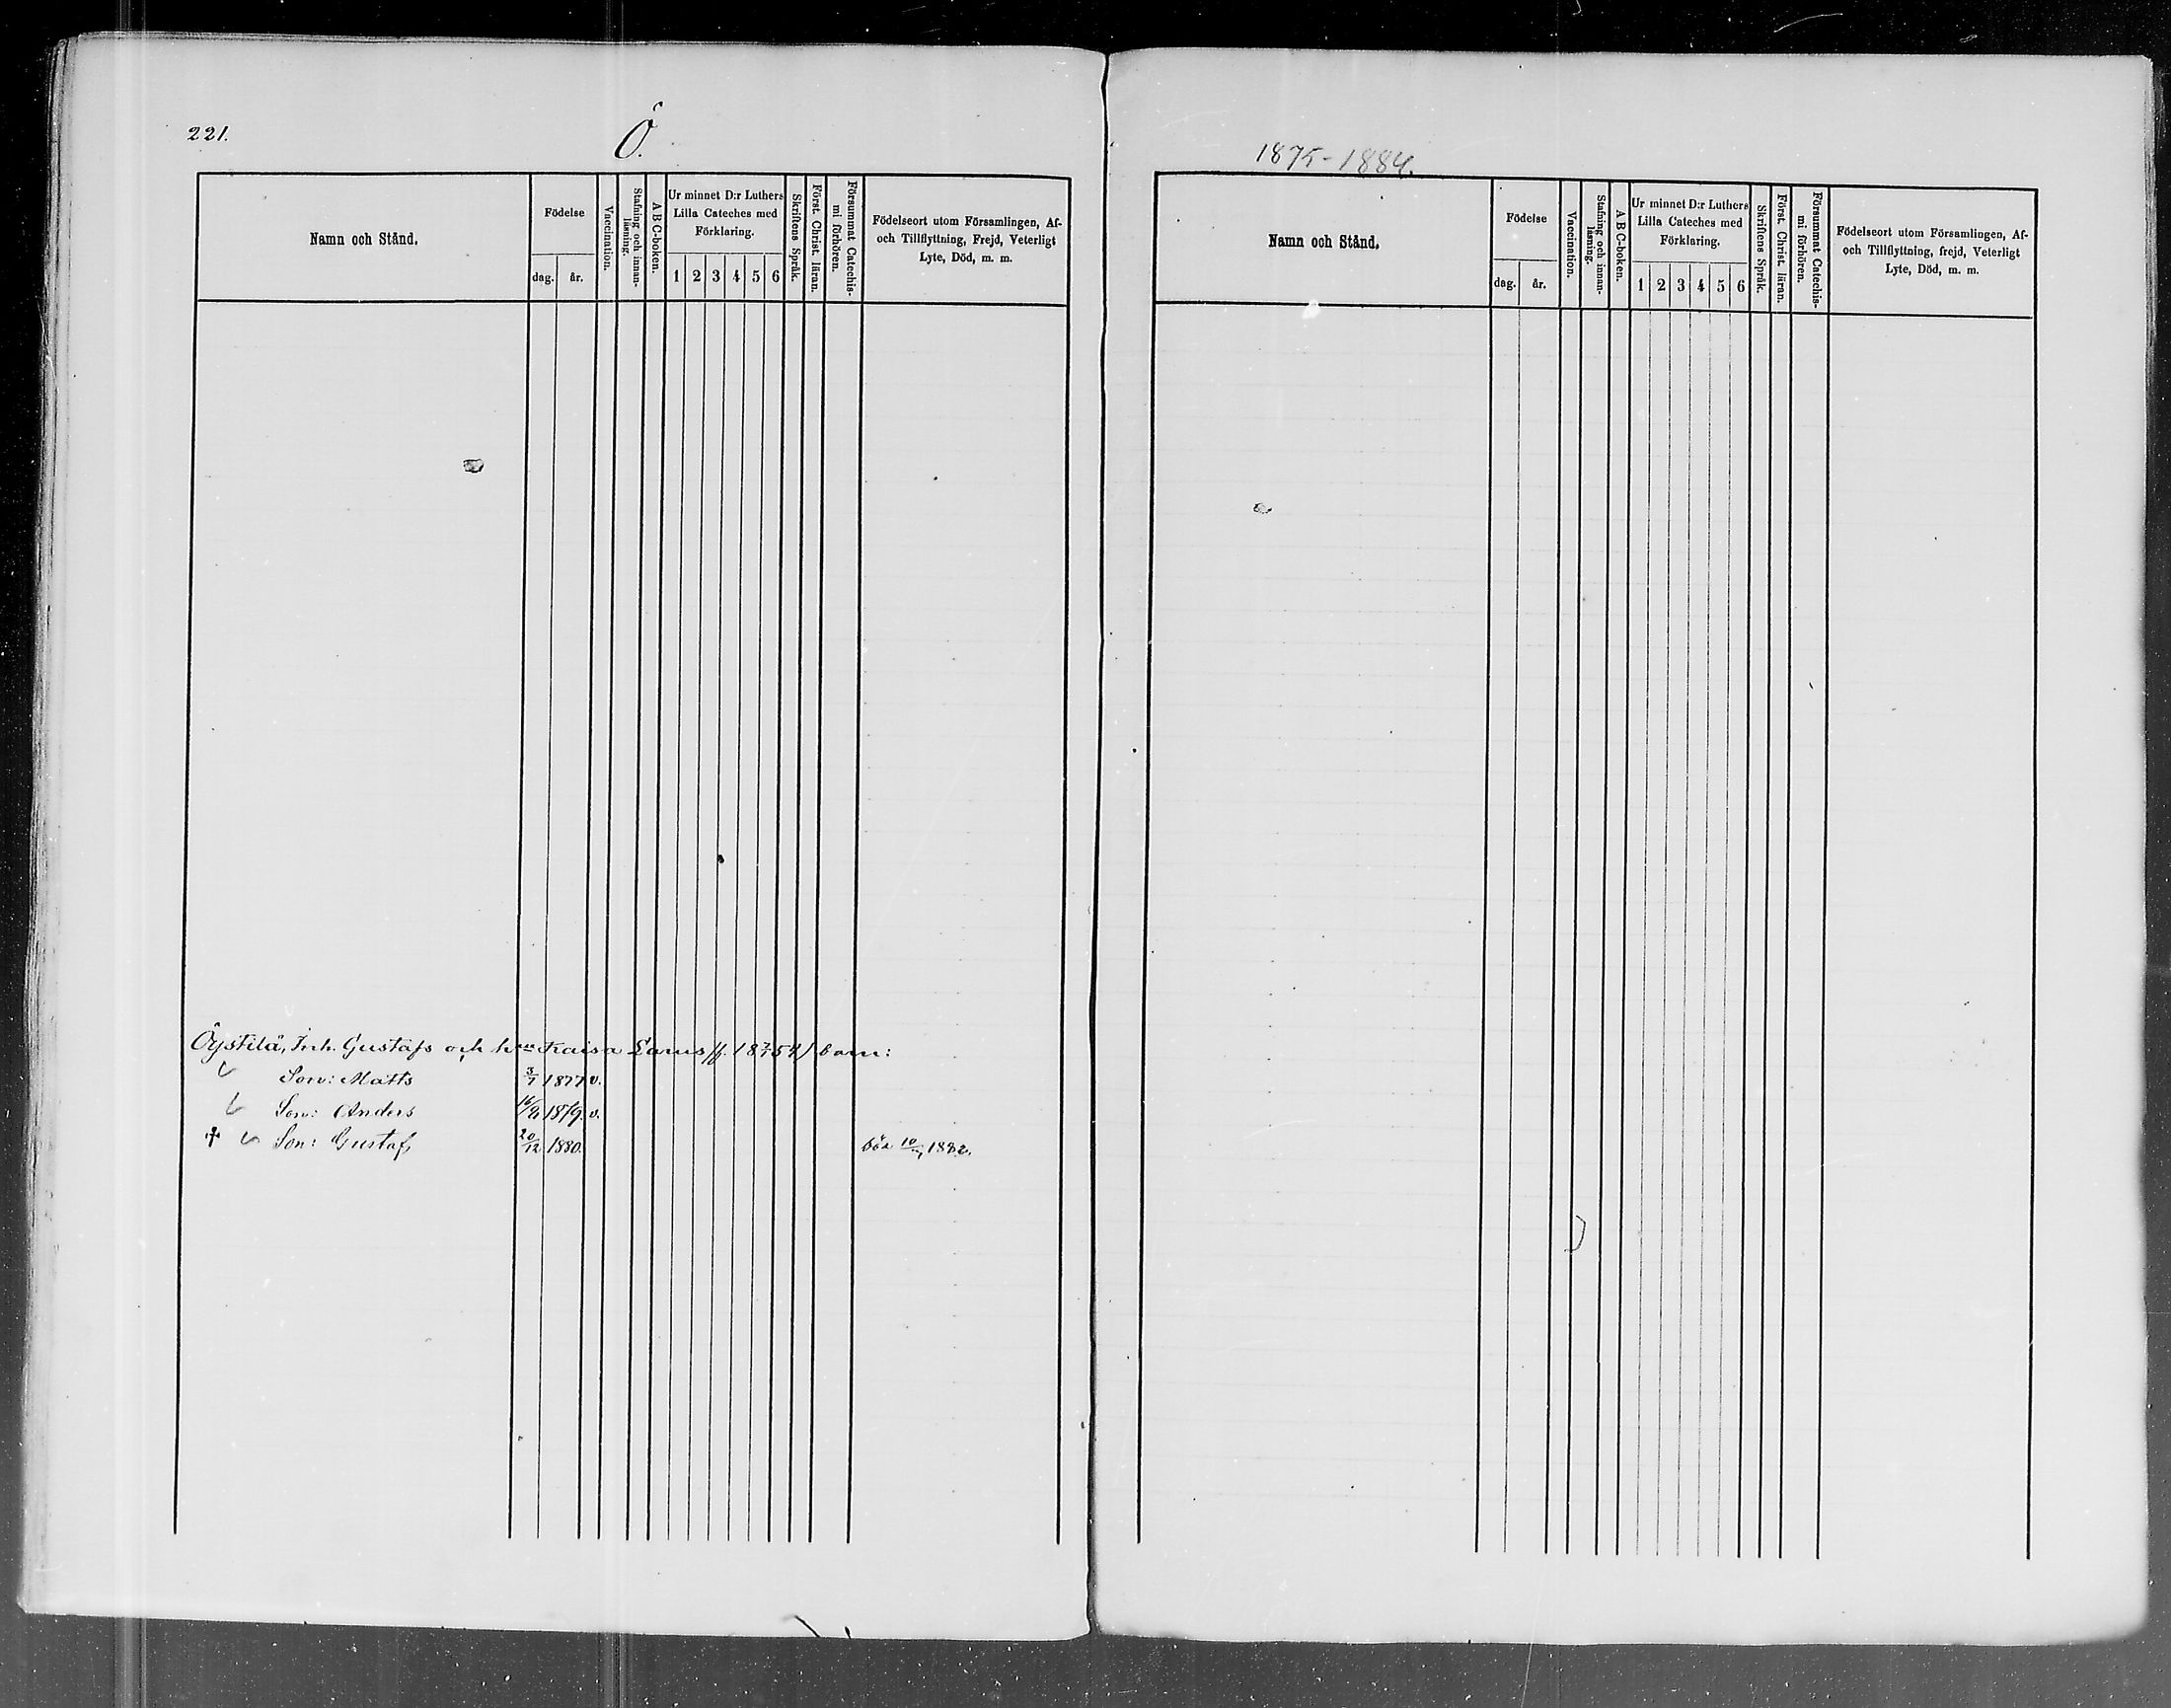 221.
Ö.
Namn och Stånd.
Födelse
dag.
år.
Vaccination.
Stafning och innan-
läsning.
A B C-boken.
Ur minnet D:r Luthers
Lilla Cateches med
Förklaring.
1 2 3 4 5 6
Skriftens Språk.
Först. Christ. läran.
Försummat Catechis-
mi förhören.
Födelseort utom Församlingen, Af-
och Tillflyttning, Frejd, Veterligt
Lyte, Död, m. m.
Öystilä, Inh. Gustafs och Kaisa barn:
Son: Matts 3/7 1877 v.
Son: Anders 1879. v.
† Son: Gustaf, 20/12 1880. död 1882.
1875-1884.
Namn och Stånd.
Födelse
dag.
år.
Vaccination.
Stafning och innan-
läsning.
A B C-boken.
Ur minnet D:r Luthers
Lilla Cateches med
Förklaring.
1 2 3 4 5 6
Skriftens Språk.
Först. Christ. läran.
Försummat Catechis-
mi förhören.
Födelseort utom Församlingen, Af-
och Tillflyttning, frejd, Veterligt
Lyte, Död, m. m.